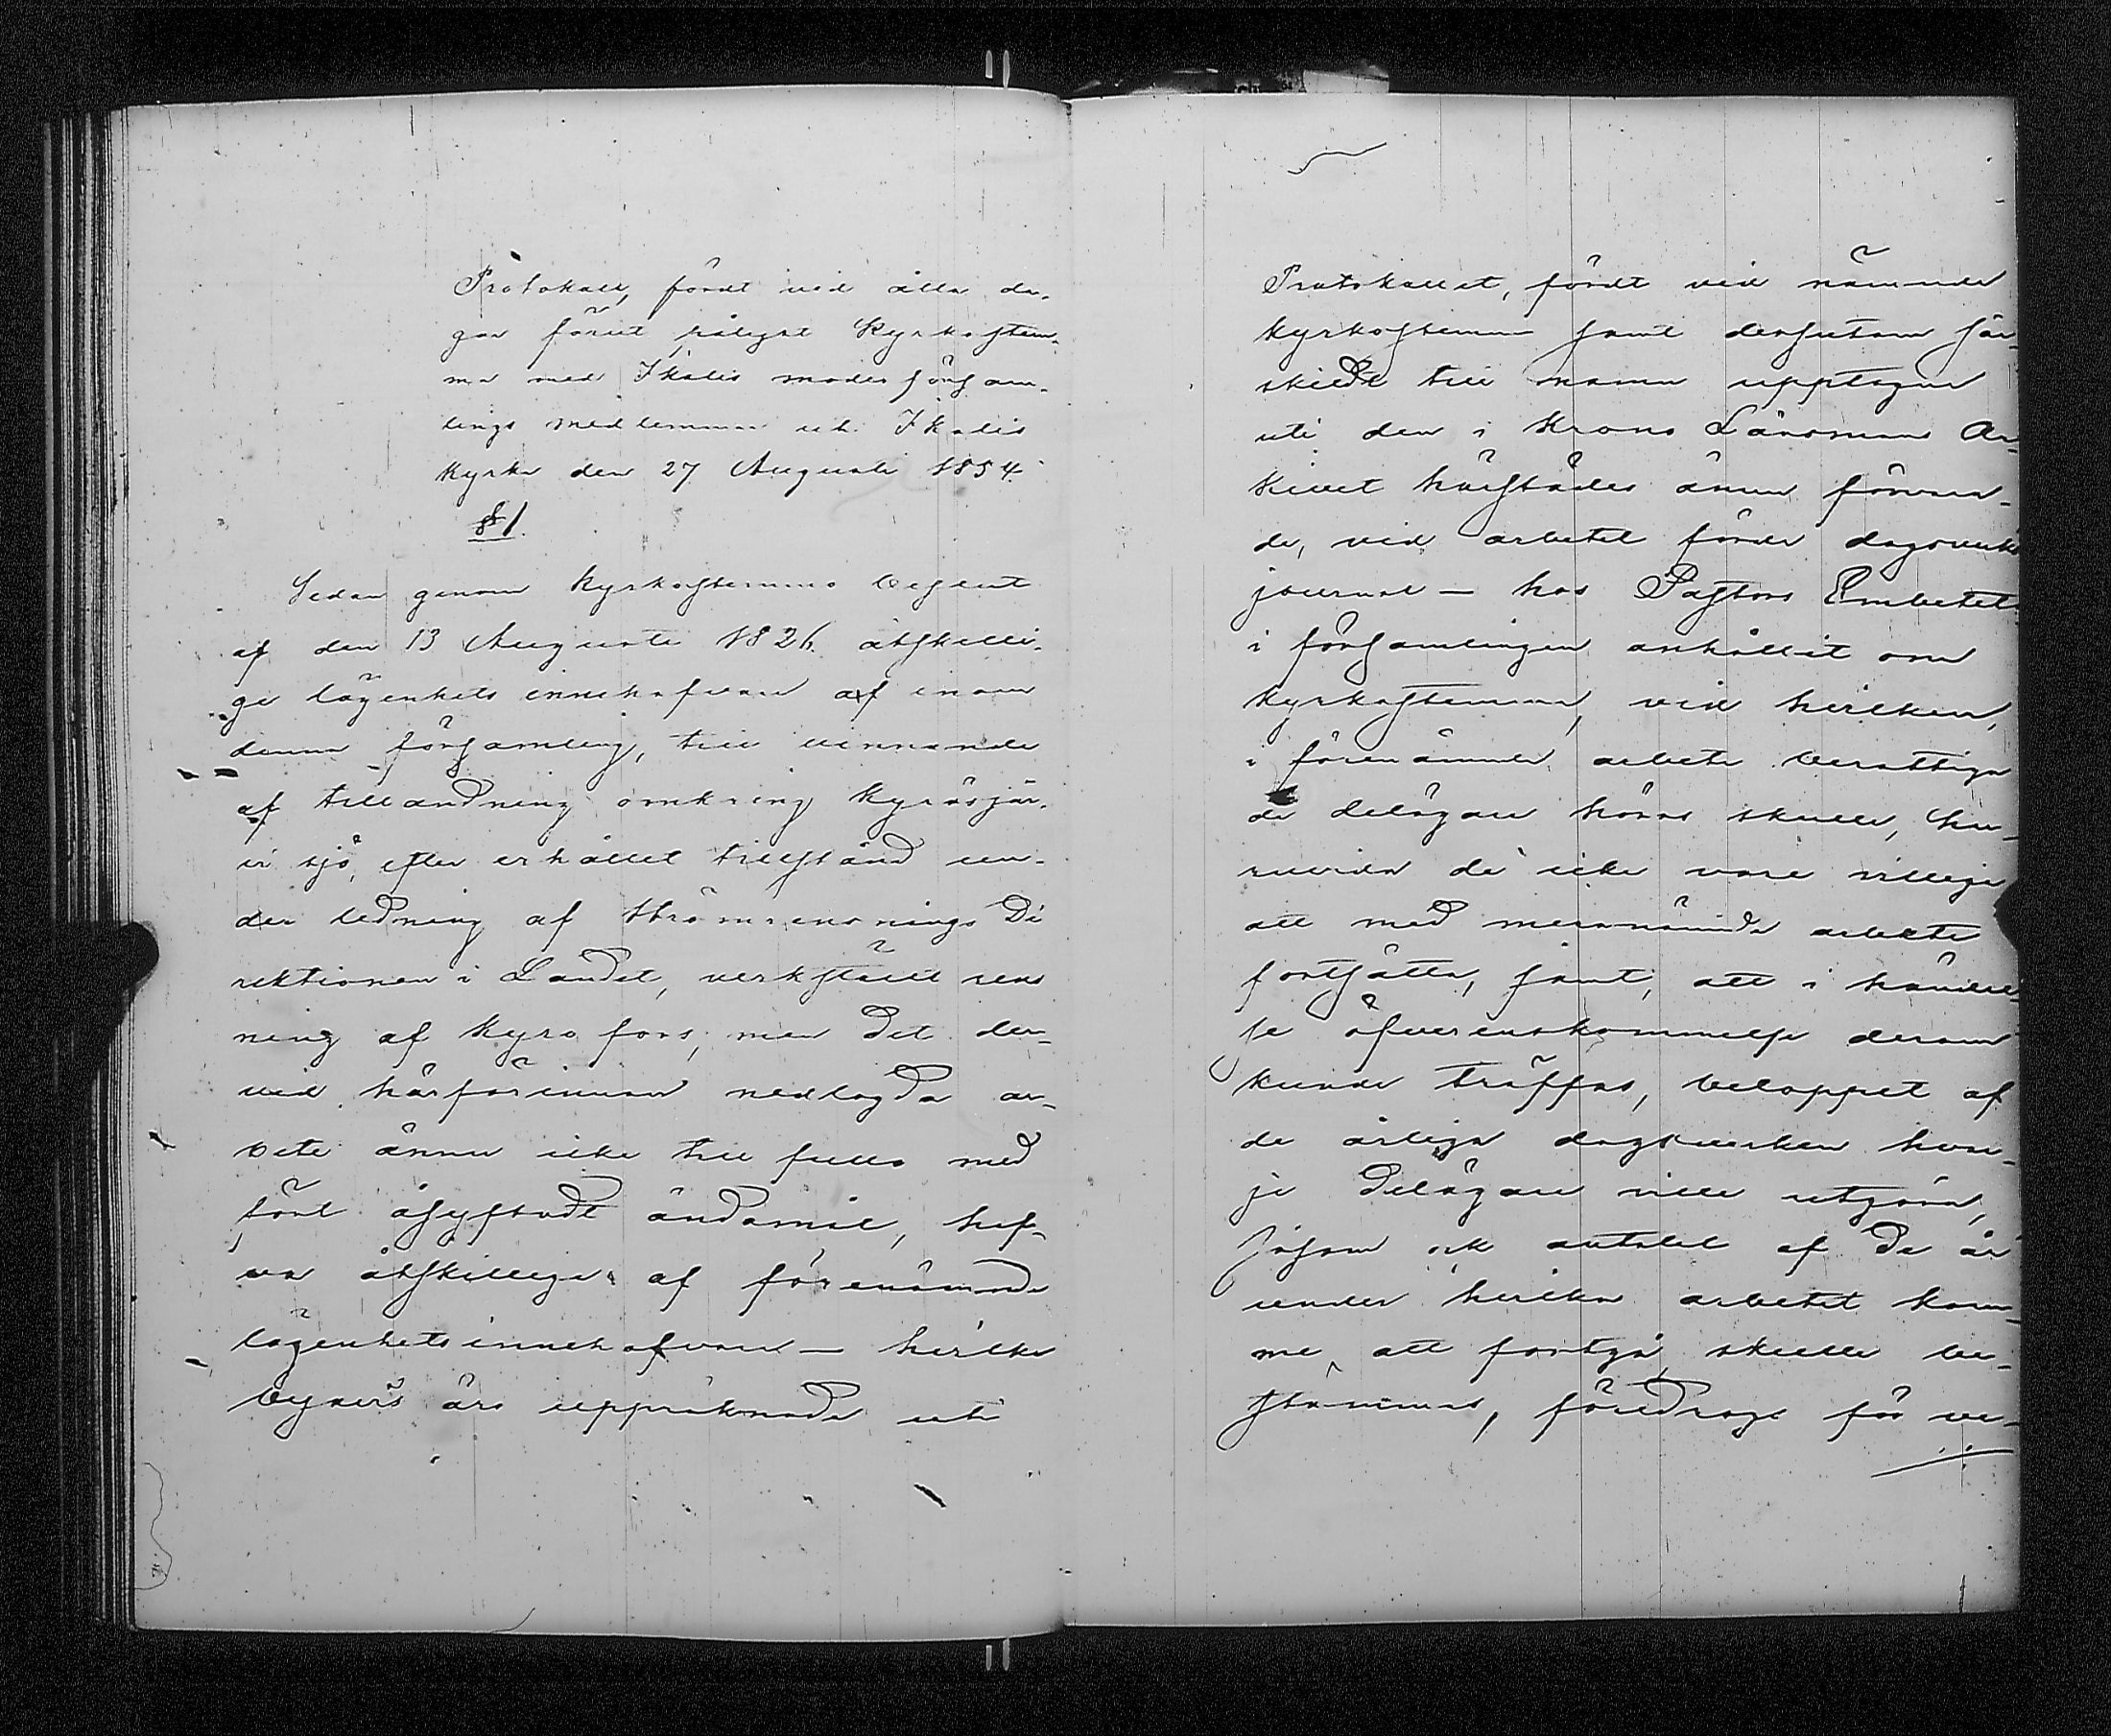 Protokoll, fördt vid åtta da-
gar förut pålyst Kyrkostäm-
ma med Ikalis moderförsam-
lings medlemmar uti Ikalis
kyrka den 27 Augusti 1854.
§ 1.
Sedan genom Kyrkostämmo beslut
af den 13 Augusti 1826. åtskilli-
ge lägenhets innehafvare af inom
denna församling, till vinnande
af tillandning omkring Kyrösjär-
vi sjö, efter erhållet tillstånd un-
der ledning af Strömrensnings Di
rektionen i Landet, verkställt rens
ning af Kyro fors, men det der-
vid härförinnan nedlagda ar-
bete ännu icke till fullo med
fört åsyftadt ändamål, haf-
va åtskillige af förenämnde
lägenhetsinnehafvare — hvilka
byavis äro uppräknade uti
Protokollet, fördt vid nämnda
kyrkostämma samt dessutom sär-
skildt till namn upptagne
uti den i Krono Länsmans Ar-
kivet härstädes ännu förvara-
de, vid arbetet förda dagsverks
journal — hos Pastors Embetet
i församlingen anhållit om
kyrkostämma, vid hvilken,
i förenämnda arbete berättiga
de delägare höras skulle, hu-
ruvida de icke vore villige
att med meranämnda arbete
fortsätta, samt, att i händel-
se öfverenskommelse derom
kunde träffas, beloppet af
de årliga dagsverken hvar-
je delägare ville utgöra,
såsom ock antalet af de år
under hvilka arbetet kom-
me att fortgå, skulle be-
stämmas, föredrogs för ve-